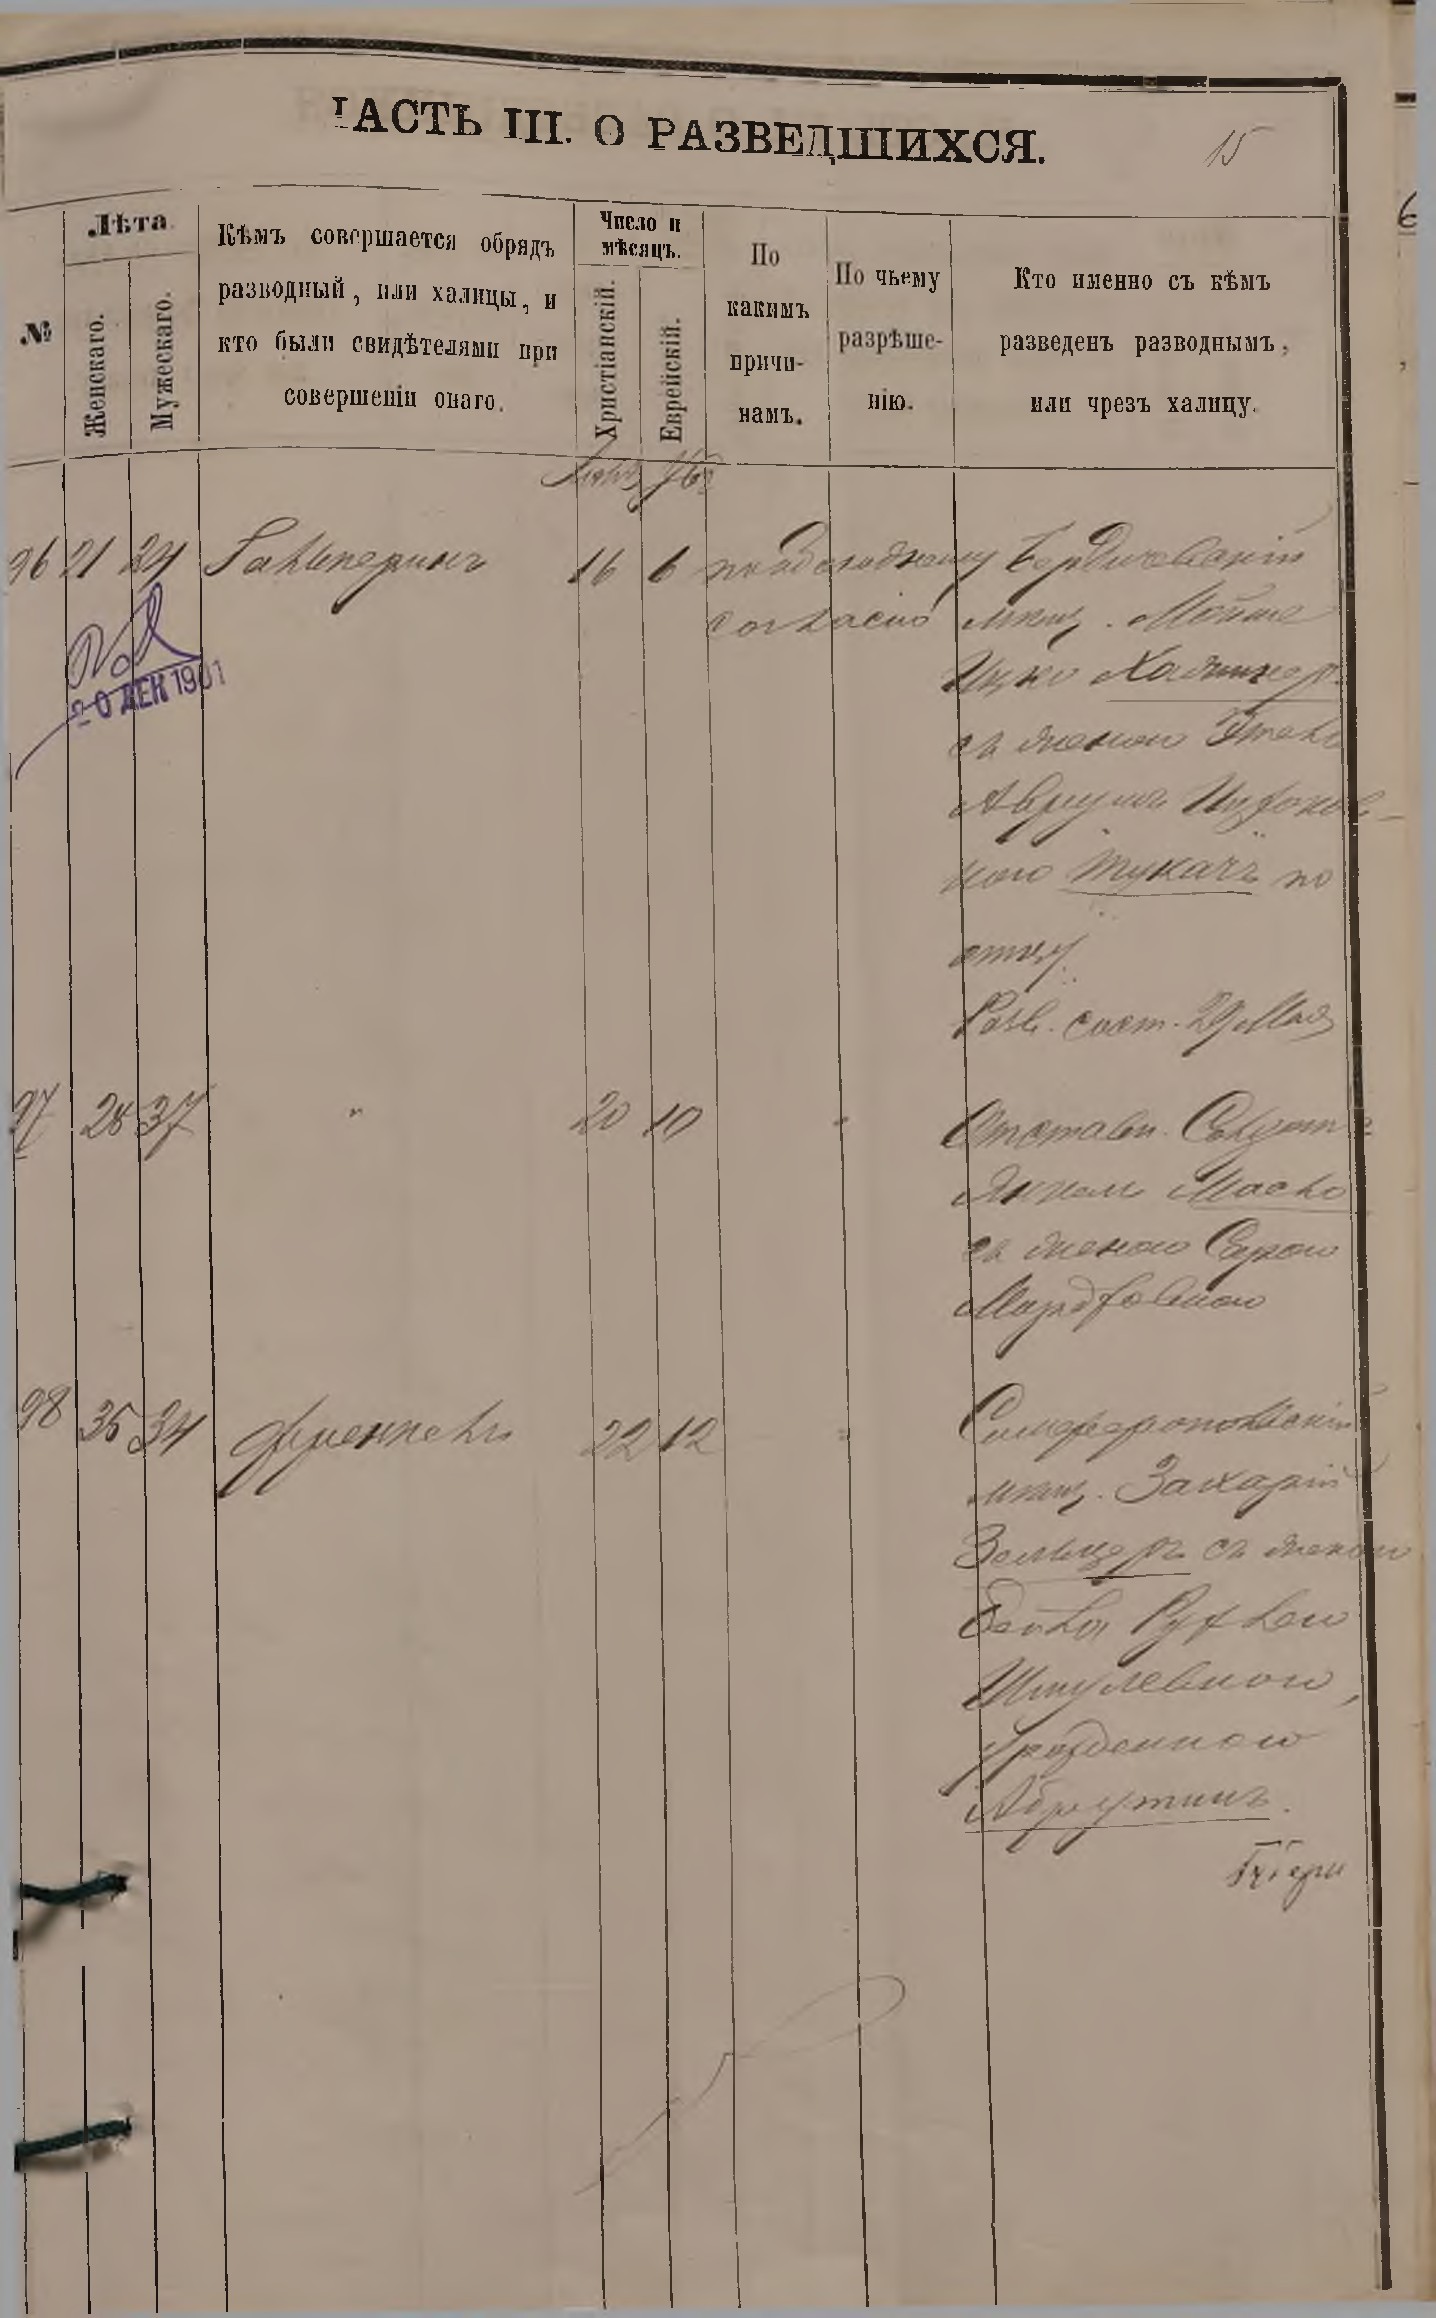 ЧАСТЬ III. О РАЗВЕДШИХСЯ.
15
№
Лѣта
Женскаго.
Мужескаго.
Кѣмъ совершается обрядъ
разводный, или халицы, и
кто были свидѣтелями при
совершеніи онаго.
Число и
мѣсяцъ.
Христіанскій.
Еврейскій.
По
какимъ
причи-
намъ.
По чьему
разрѣше-
нію.
Кто именно съ кѣмъ
разведенъ разводнымъ,
или чрезъ халицу.
96 21 24 Гальперинъ 16 6 по обоюдному Бердичевскій
согласію мѣщ. Мойше
Ицко
съ женою Этель
Аврумъ Ицковой
ною Тукачъ по
отцу.
Разв. сост. 29 Мая
20 ДЕК 1901
97 28 37 " 20 10 " Отставн. Солдатъ
Янкель
съ женою Сурою
Мордковною
98 35 34 Френкель 22 12 " Симферопольскій
мѣщ. Захарій
Зельцеръ съ женою
Бейла Рухлею
Шмулевною,
урожденною
Абрутинъ.